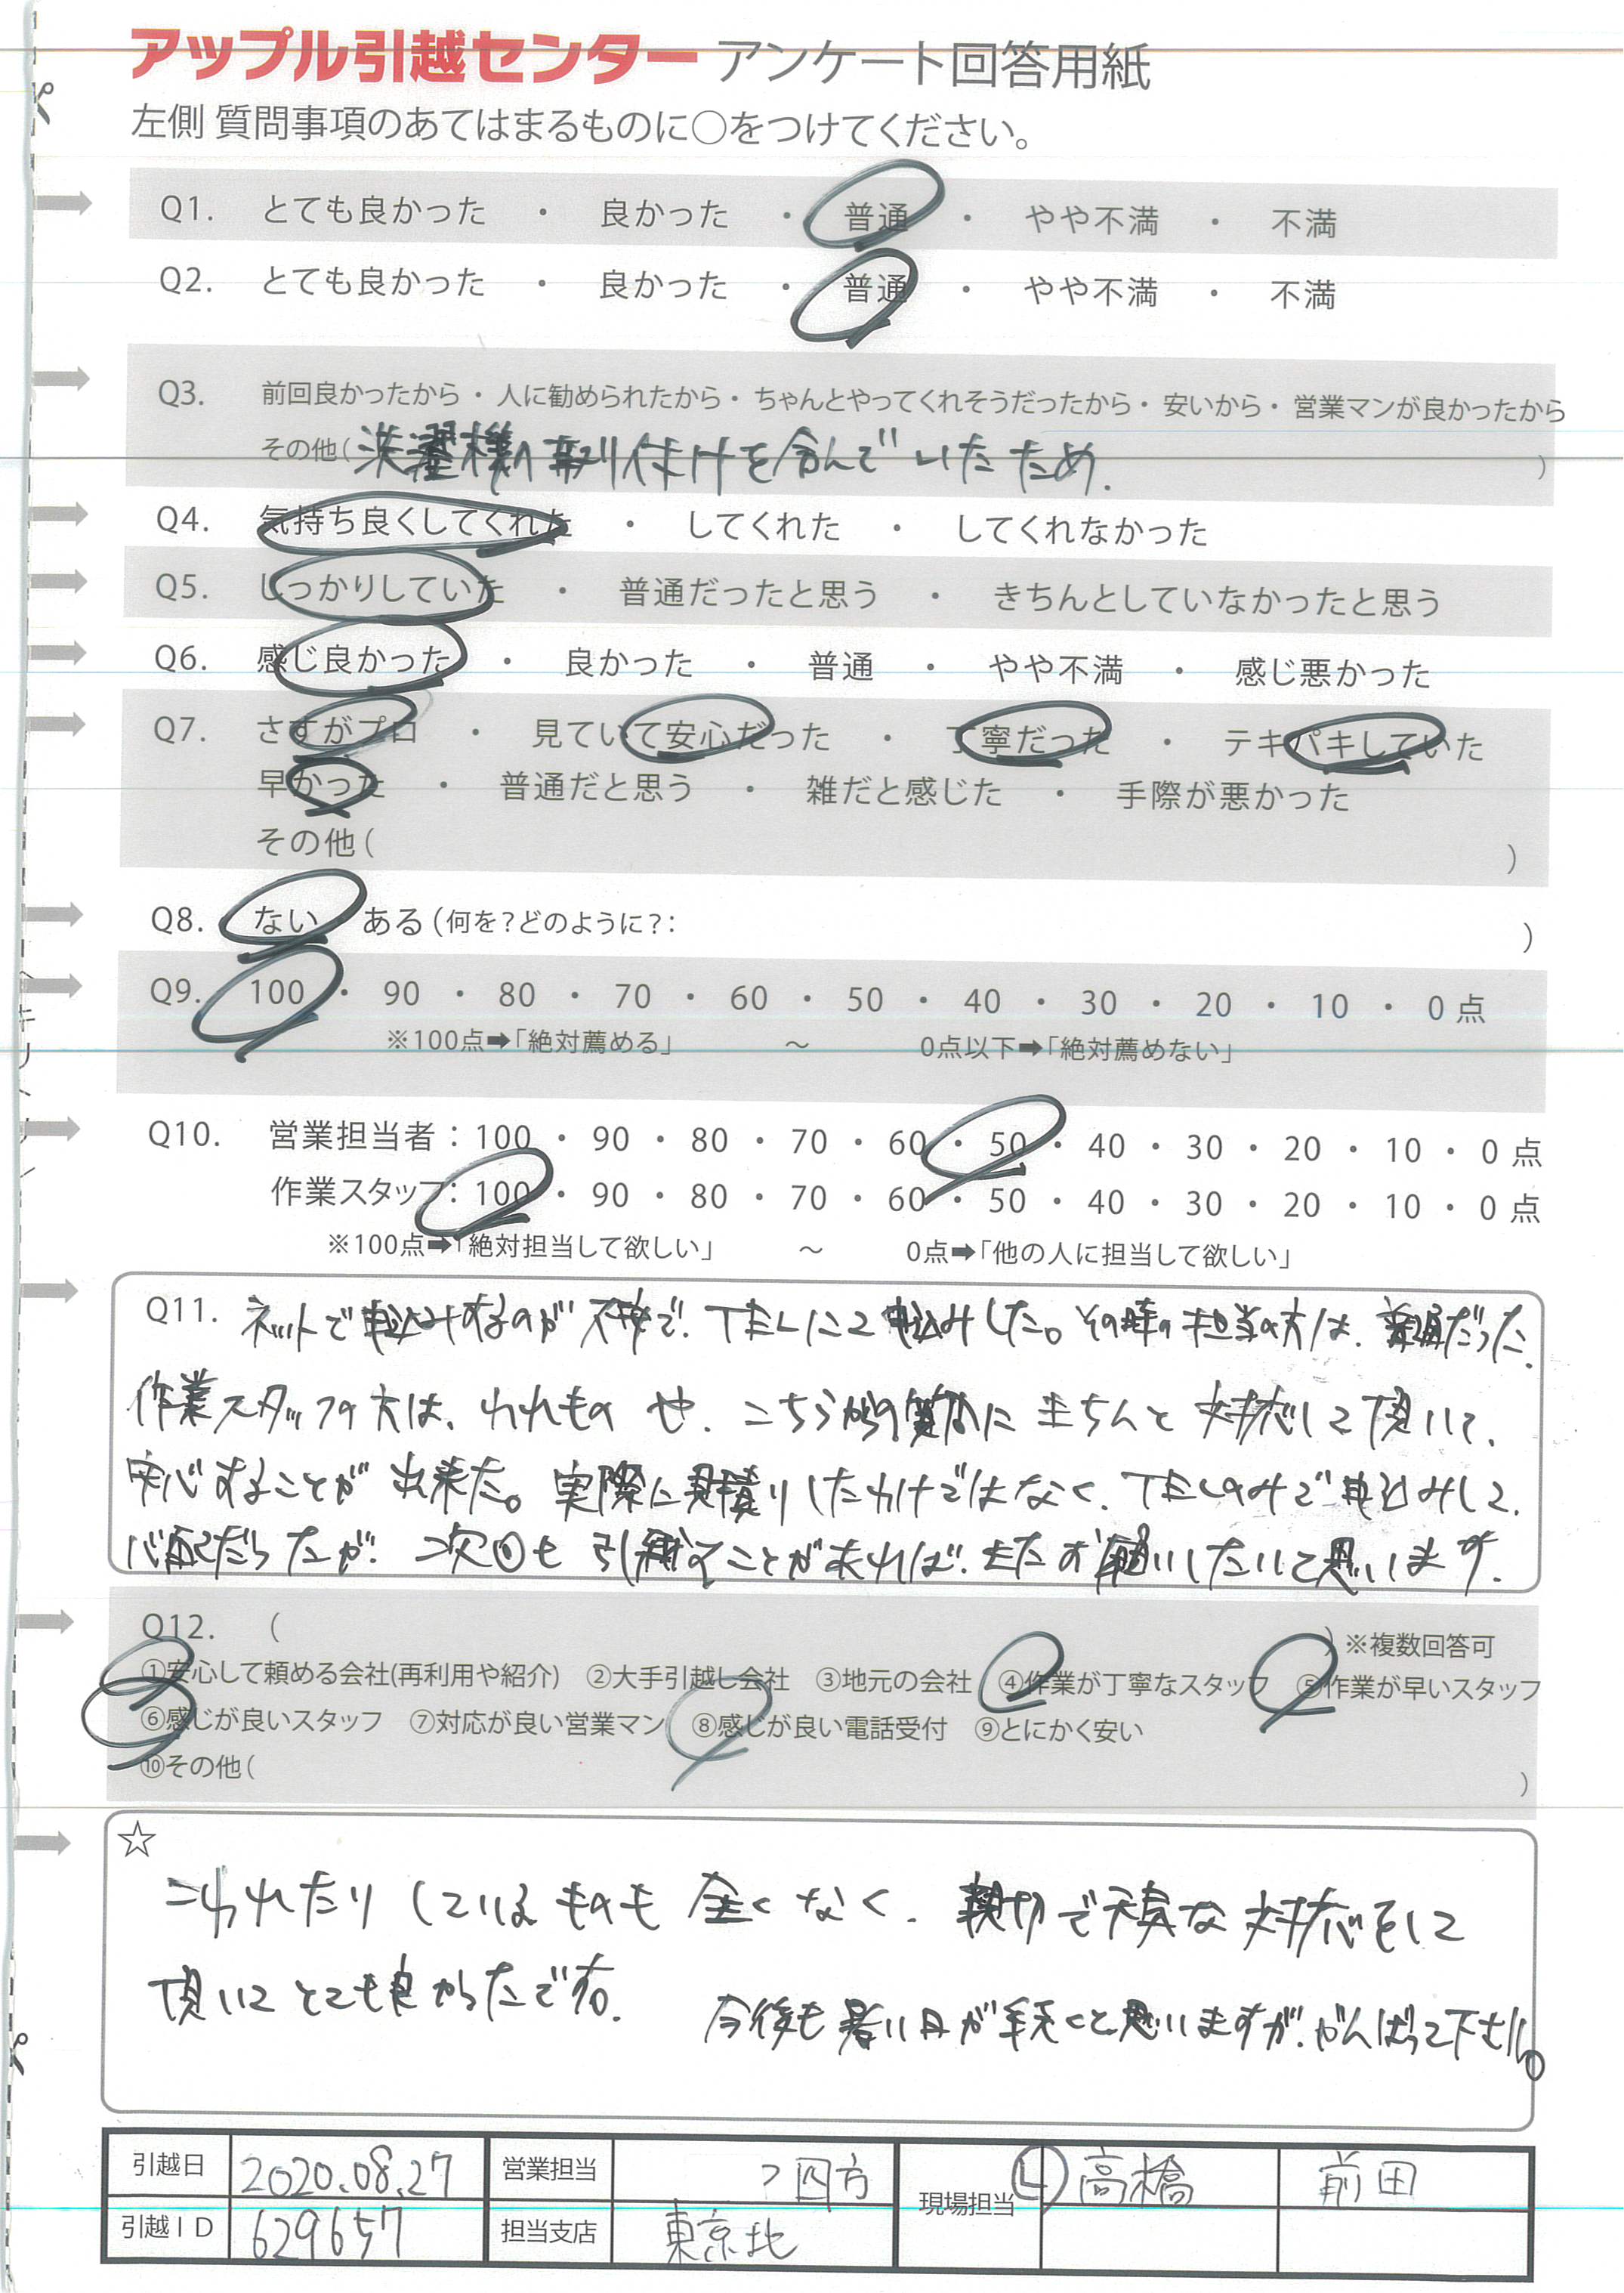 アップル引越センター アンケート回答用紙
左側 質問事項のあてはまるものに○をつけてください。
Q1. とても良かった ・ 良かった ・ 普通 ・ やや不満 ・ 不満
Q2. とても良かった ・ 良かった ・ 普通 ・ やや不満 ・ 不満
Q3. 前回良かったから・人に勧められたから・ちゃんとやってくれそうだったから・安いから・営業マンが良かったから
その他(洗濯機の取り付けを含んでいたため. )
Q4. 気持ち良くしてくれた ・ してくれた ・ してくれなかった
Q5. しっかりしていた ・ 普通だったと思う ・ きちんとしていなかったと思う
Q6. 感じ良かった ・ 良かった ・ 普通 ・ やや不満 ・ 感じ悪かった
Q7. さすがプロ ・ 見ていて安心だった ・ 丁寧だった ・ テキパキしていた
早かった ・ 普通だと思う ・ 雑だと感じた ・ 手際が悪かった
その他( )
Q8. ない ・ ある(何を?どのように?: )
Q9. 100 ・ 90 ・ 80 ・ 70 ・ 60 ・ 50 ・ 40 ・ 30 ・ 20 ・ 10 ・ 0 点
※100点➡「絶対薦める」 ～ 0点以下➡「絶対薦めない」
Q10. 営業担当者：100 ・ 90 ・ 80 ・ 70 ・ 60 ・ 50 ・ 40 ・ 30 ・ 20 ・ 10 ・ 0 点
作業スタッフ：100 ・ 90 ・ 80 ・ 70 ・ 60 ・ 50 ・ 40 ・ 30 ・ 20 ・ 10 ・ 0 点
※100点➡「絶対担当して欲しい」 ～ 0点➡「他の人に担当して欲しい」
Q11. ネットで申込みするのが不安で、TELにて申込みした。その時の担当の方は、普通だった.
作業スタッフの方は、われものや、こちらからの質問にきちんと対応して頂いて、
安心することが出来た。実際に見積りしたわけではなく、TELのみで申込みして、
心配だったが、次回も引越すことがあれば、またお願いしたいと思います.
Q12. ( ) ※複数回答可
①安心して頼める会社(再利用や紹介) ②大手引越し会社 ③地元の会社 ④作業が丁寧なスタッフ ⑤作業が早いスタッフ
⑥感じが良いスタッフ ⑦対応が良い営業マン ⑧感じが良い電話受付 ⑨とにかく安い
⑩その他( )
☆
こわれたりしているものも全くなく、親切で丁寧な対応をして
頂いてとても良かったです。
今後も暑い日が続くと思いますが、がんばって下さい。
引越日 2020.08.27 営業担当 四方 現場担当 Ⓛ 高橋 前田
引越ID 629657 担当支店 東京北
キリトリ